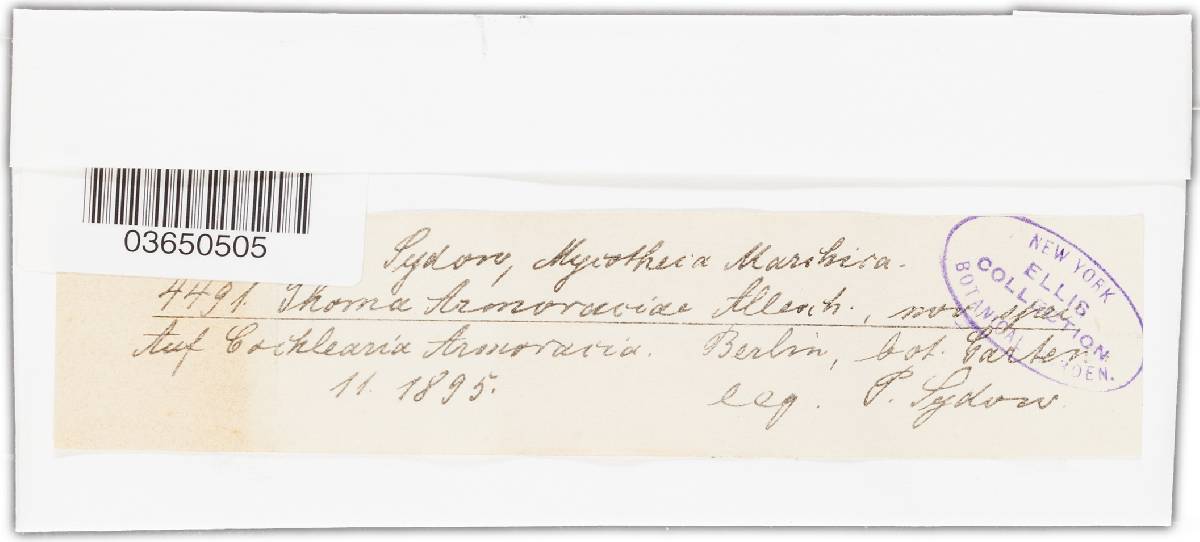 03650505
Sydow, Mycotheca Marchica.
4491. Phoma Armoraciae Allesch., nov. spec.
Auf Cochlearia Armoracia. Berlin, bot. Garten
11. 1895. leg. P. Sydow.
NEW YORK
ELLIS
COLLECTION.
BOTANICAL GARDEN.